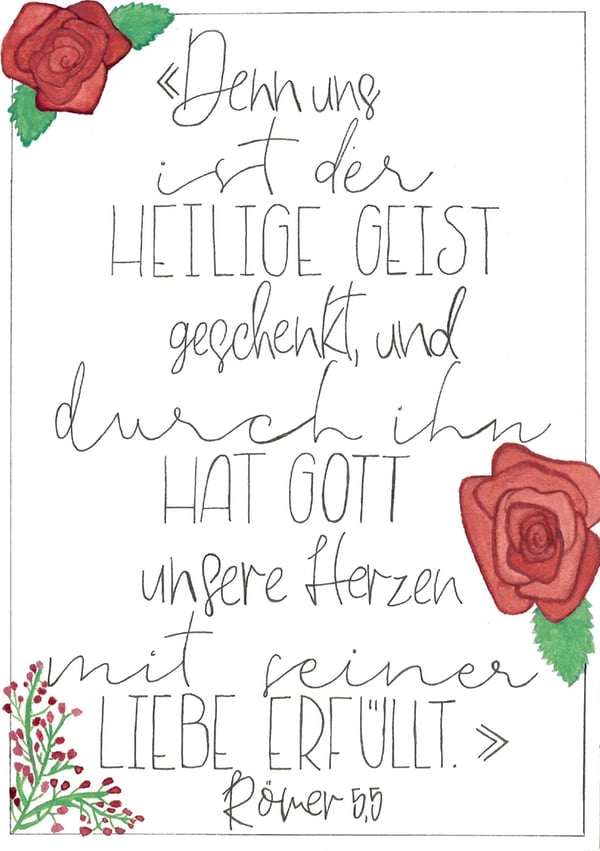 «Denn uns
ist der
HEILIGE GEIST
geschenkt, und
durch ihn
HAT GOTT
unsere Herzen
mit seiner
LIEBE ERFÜLLT.»
Römer 5,5